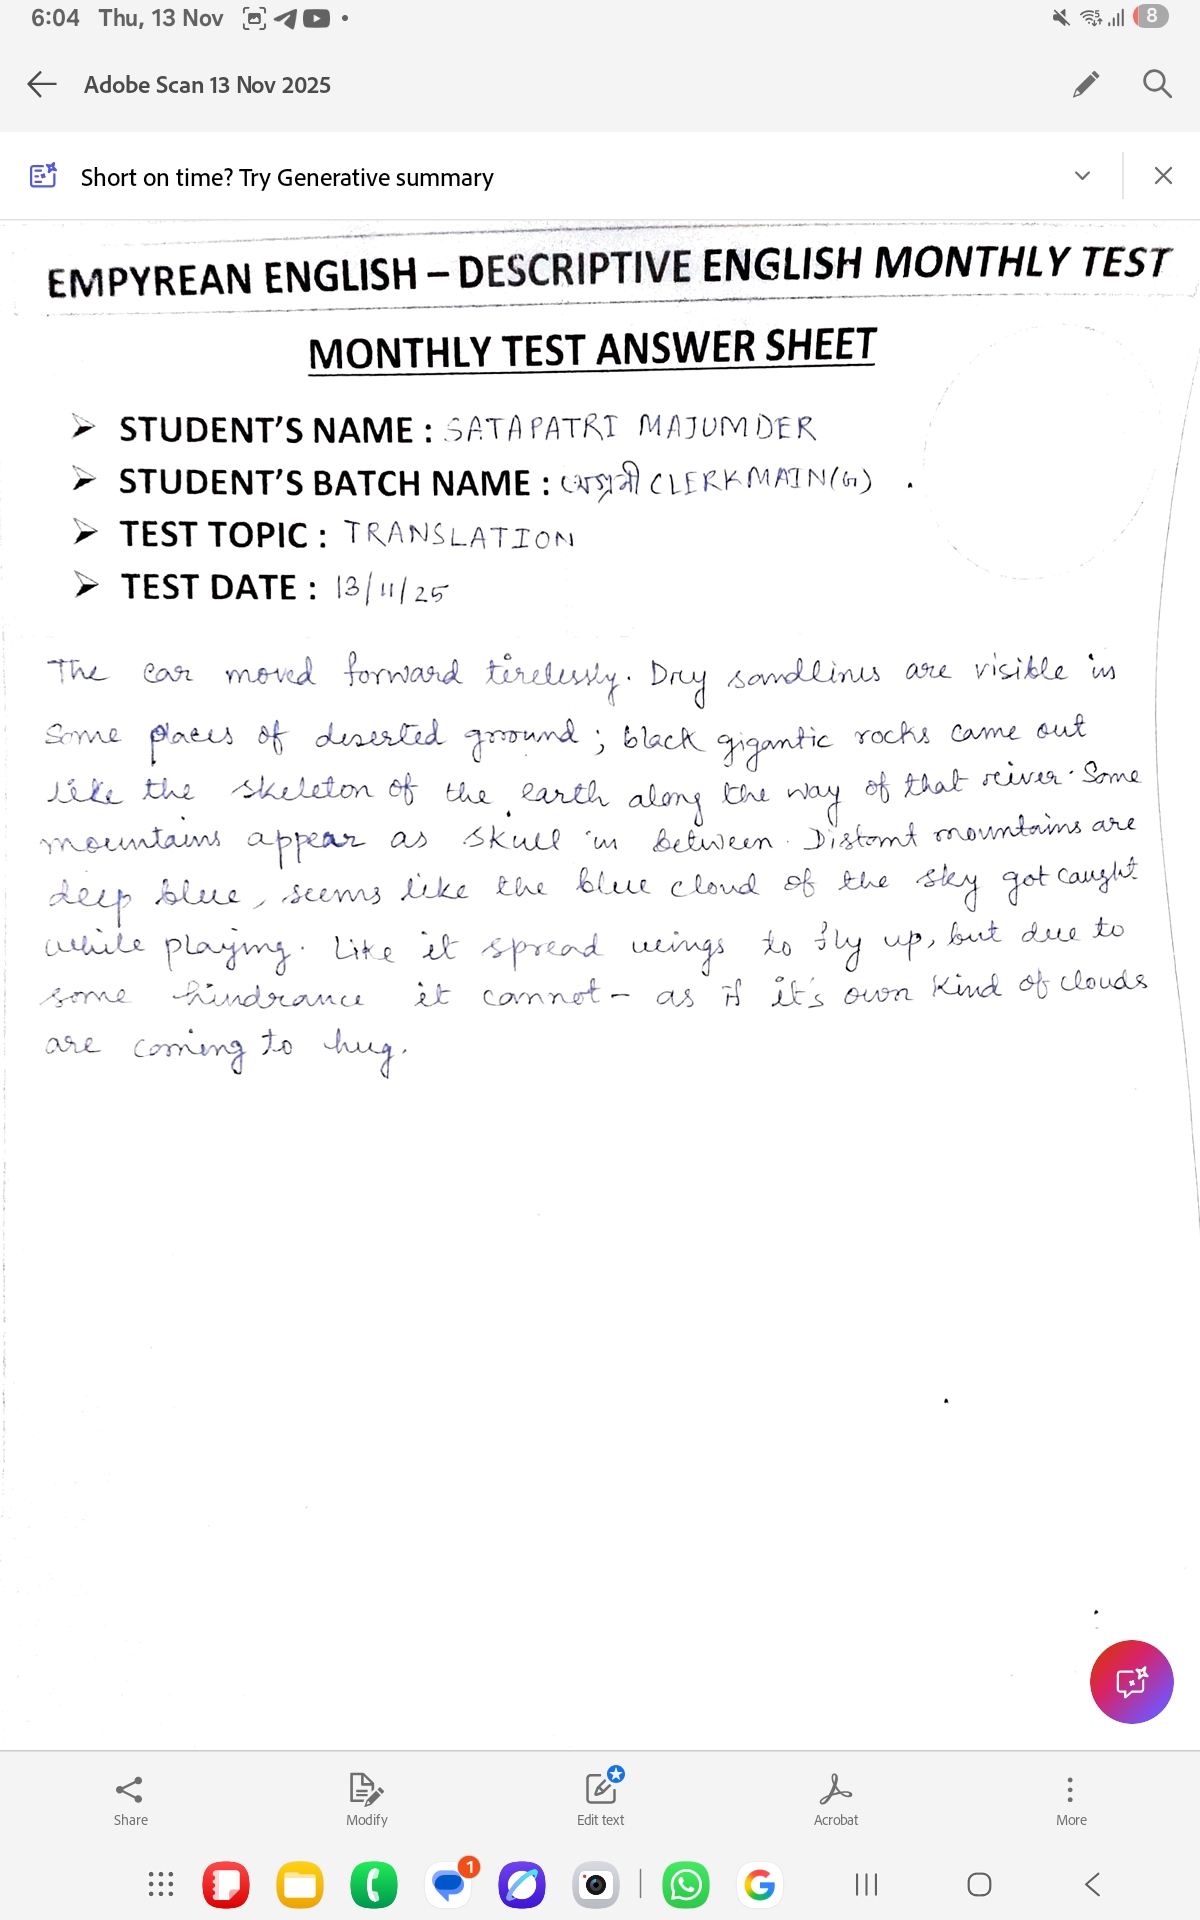 6:04 Thu, 13 Nov
8
Adobe Scan 13 Nov 2025
Short on time? Try Generative summary
EMPYREAN ENGLISH – DESCRIPTIVE ENGLISH MONTHLY TEST
MONTHLY TEST ANSWER SHEET
STUDENT'S NAME : SATAPATRI MAJUMDER
STUDENT'S BATCH NAME : CLERKMAIN(G)
TEST TOPIC : TRANSLATION
TEST DATE : 13/11/25
The car moved forward tirelessly. Dry sandlines are visible in
Some places of deserted ground ; black gigantic rocks came out
like the skeleton of the earth along the way of that river. Some
mountains appear as skull in between. Distant mountains are
deep blue, seems like the blue cloud of the sky got caught
while playing. Like it spread wings to fly up, but due to
some hindrance it cannot – as if it's own kind of clouds
are coming to hug.
Share Modify Edit text Acrobat More
1